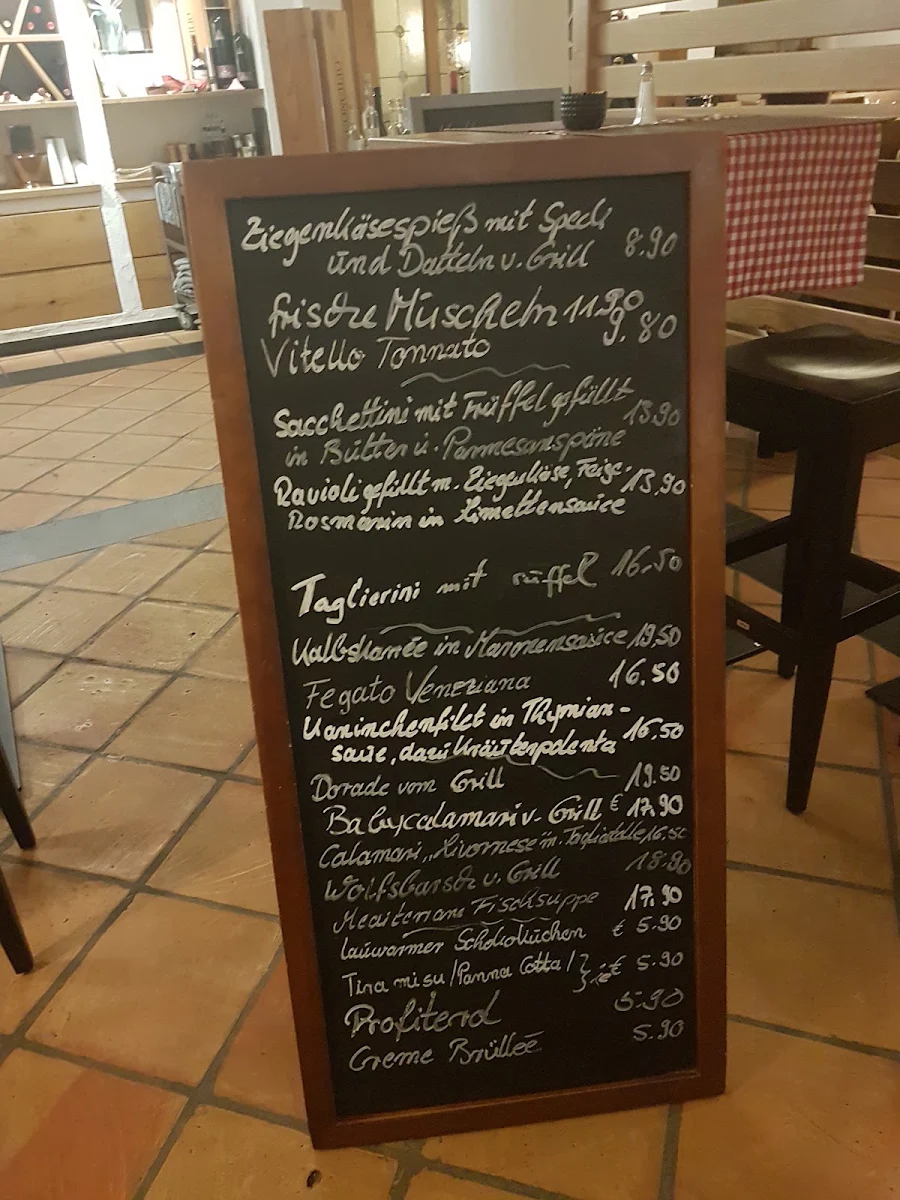 Ziegenkäsespieß mit Speck
und Datteln v. Grill 8.90
frische Muscheln 11.90
Vitello Tonnato 9.80
Sacchettini mit Trüffel gefüllt
in Butter u. Parmesanspäne 13.90
Ravioli gefüllt m. Ziegenkäse, Feige- 13,90
Rosmarin in Limettensauce
Taglierini mit rüffel 16.50
Kalbskarrée in Maronensauce 19,50
Fegato Veneziana 16.50
Kaninchenfilet in Thymian-
sauce, dazu Kräuterpolenta 16,50
Dorade vom Grill 19.50
Babycalamari v. Grill € 17,90
Calamari "Livornese" m. Tagliatelle 16.50
Wolfsbarsch v. Grill 18.90
Mediterrane Fischsuppe 17.90
lauwarmer Schokokuchen € 5.90
Tira mi su / Panna Cotta / } je € 5.90
Profiterol 5.90
Creme Brülleé 5.90